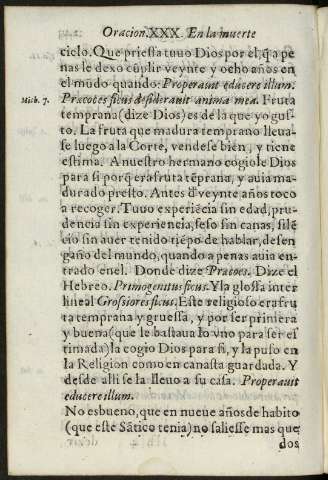 Oracion.XXX. En la muerte
cielo. Que priessa tuuo Dios por el, q̃ a pe
nas le dexo cũplir veynte y ocho años en
el mũdo quando: Properauit educere illum.
Mich. 7. Præcoces ficus desiderauit anima mea. Fruta
temprana (dize Dios) es de la que yo gus-
to. La fruta que madura temprano lleua-
se luego a la Corte, vendese bien, y tiene
estima. A nuestro hermano cogiole Dios
para si porq̃ era fruta tẽprana, y auia ma-
durado presto. Antes d̃ veynte años toco
a recoger. Tuuo experiẽcia sin edad, pru-
dencia sin experiencia, seso sin canas, silẽ
cio sin auer tenido tiẽpo de hablar, desen
gaño del mundo, quando a penas auia en
trado enel. Donde dize Præcoes. Dize el
Hebreo. Primogenitus ficus. Y la glossa inter
lineal Grossiores ficus. Este religioso era fru
ta temprana y gruessa, y por ser primera
y buena (que le bastaua lo vno para ser es
timada) la cogio Dios para si, y la puso en
la Religion como en canasta guardada. Y
desde alli se la lleuo a su casa. Properauit
educere illum.
No es bueno, que en nueue años de habito
(que este Sãtico tenia) no saliesse mas que
dos